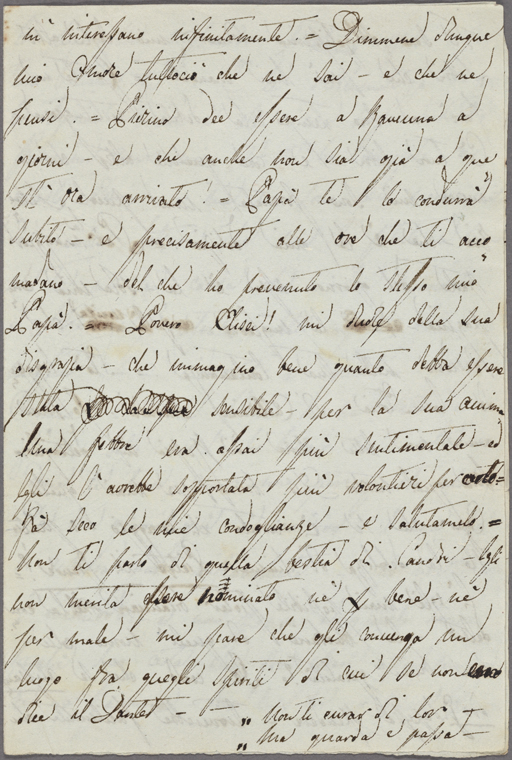 m' interessano infinitamente. = Dimmene dunque
mio Amore tuttociò che ne sai - e che ne
pensi. = Pierino dee essere a Ravenna a
giorni - e che anche non sia già a que
st' ora arrivato! = Papà te lo condurrà
subito - e precisamente alle ore che ti acco
modano - del che ho prevenuto lo stesso mio
Papà. = Povero Elisei! mi duole della sua
disgrazia - che immagino bene quanto debba essere
stata sensibile - per la sua anima
Una febbre era assai più sentimentale - ed
egli l' avrebbe sopportata più volontieri per
Fà seco le mie condoglianze - e salutamelo. =
Non ti parlo di quella bestia di - Egli
non merita essere nominato nè bene - nè
per male - mi pare che gli convenga un
luogo fra quegli spiriti di cui se non
dice il Dante - - „ non ti curar di lor -
„ ma guarda e passa -